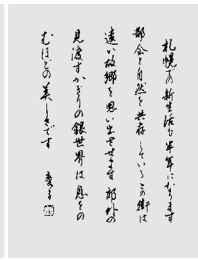 札幌での新生活も半年になります
都会と自然を共存している この街は
遠い故郷を思い出させます 郊外の
見渡すかぎりの銀世界は 息をの
むほどの美しさです